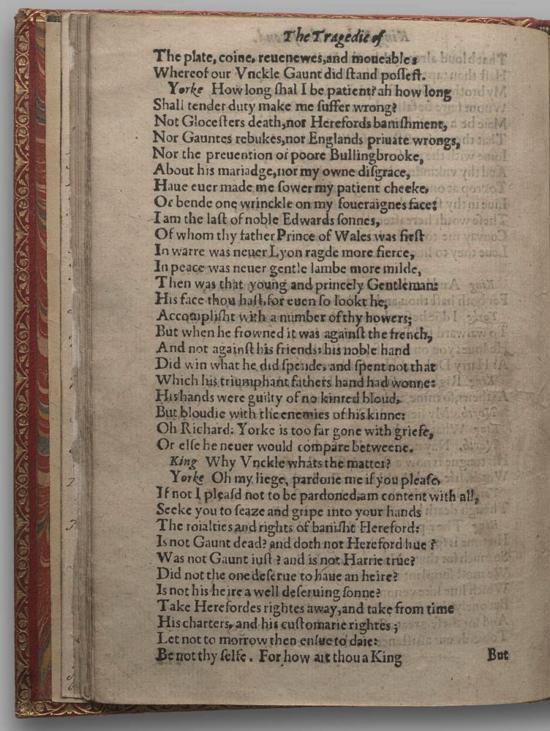 The Tragedie of
The plate, coine, reuenewes, and moueables
Whereof our Vnckle Gaunt did ſtand poſſeſt.
Yorke How long ſhal I be patient? ah how long
Shall tender duty make me ſuffer wrong?
Not Gloceſters death, nor Herefords baniſhment,
Nor Gauntes rebukes, nor Englands priuate wrongs,
Nor the preuention of poore Bullingbrooke,
About his mariadge, nor my owne diſgrace,
Haue euer made me ſower my patient cheeke,
Or bende one wrinckle on my ſoueraignes face:
I am the laſt of noble Edwards ſonnes,
Of whom thy father Prince of Wales was firſt
In warre was neuer Lyon ragde more fierce,
In peace was neuer gentle lambe more milde,
Then was that young and princely Gentleman:
His face thou haſt, for euen ſo lookt he,
Accompliſht with a number of thy howers;
But when he frowned it was againſt the french,
And not againſt his friends: his noble hand
Did win what he did ſpende, and ſpent not that
Which his triumphant fathers hand had wonne:
His hands were guilty of no kinred bloud,
But bloudie with the enemies of his kinne:
Oh Richard: Yorke is too far gone with griefe,
Or elſe he neuer would compare betweene.
King Why Vnckle whats the matter?
Yorke Oh my liege, pardone me if you pleaſe,
If not I pleaſd not to be pardoned, am content with all,
Seeke you to ſeaze and gripe into your hands
The roialties and rights of baniſht Hereford:
Is not Gaunt dead? and doth not Hereford liue?
Was not Gaunt iuſt? and is not Harrie true?
Did not the one deſerue to haue an heire?
Is not his heire a well deſeruing ſonne?
Take Herefordes rightes away, and take from time
His charters, and his cuſtomarie rightes;
Let not to morrow then enſue to daie:
Be not thy ſelfe. For how art thou a King
But